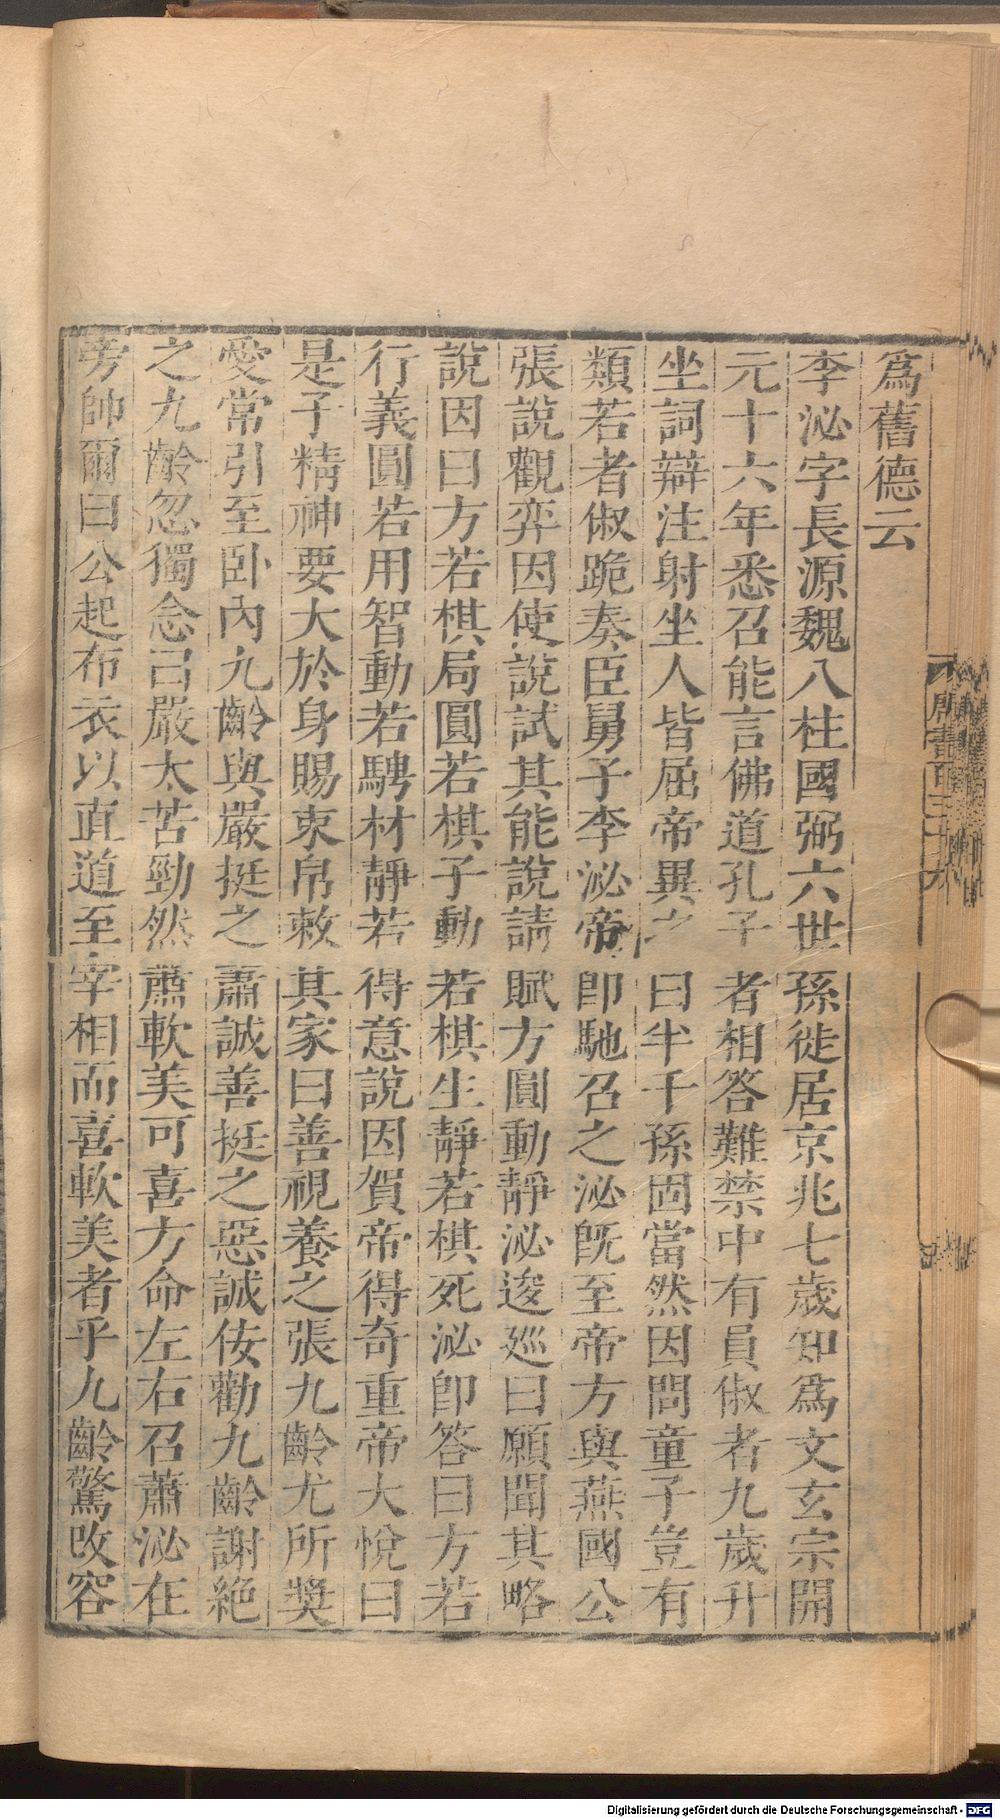 爲舊德云
李泌字長源魏八柱國弼六世孫徙居京兆七歲知爲文玄宗開
元十六年悉召能言佛道孔子者相答難禁中有員俶者九歲升
坐詞辯注射坐人皆屈帝異之曰半千孫固當然因問童子豈有
類若者俶跪奏臣舅子李泌帝卽馳召之泌旣至帝方與燕國公
張說觀弈因使說試其能說請賦方圓動靜泌逡巡曰願聞其略
說因曰方若棋局圓若棋子動若棋生靜若棋死泌卽答曰方若
行義圓若用智動若騁材靜若得意說因賀帝得奇重帝大悅曰
是子精神要大於身賜束帛敕其家曰善視養之張九齡尤所獎
愛常引至臥內九齡與嚴挺之蕭誠善挺之惡誠佞勸九齡謝絕
之九齡忽獨念曰嚴太苦勁然蕭軟美可喜方命左右召蕭泌在
旁帥爾曰公起布衣以直道至宰相而喜軟美者乎九齡驚改容
唐書百三十九
Digitalisierung gefördert durch die Deutsche Forschungsgemeinschaft - DFG